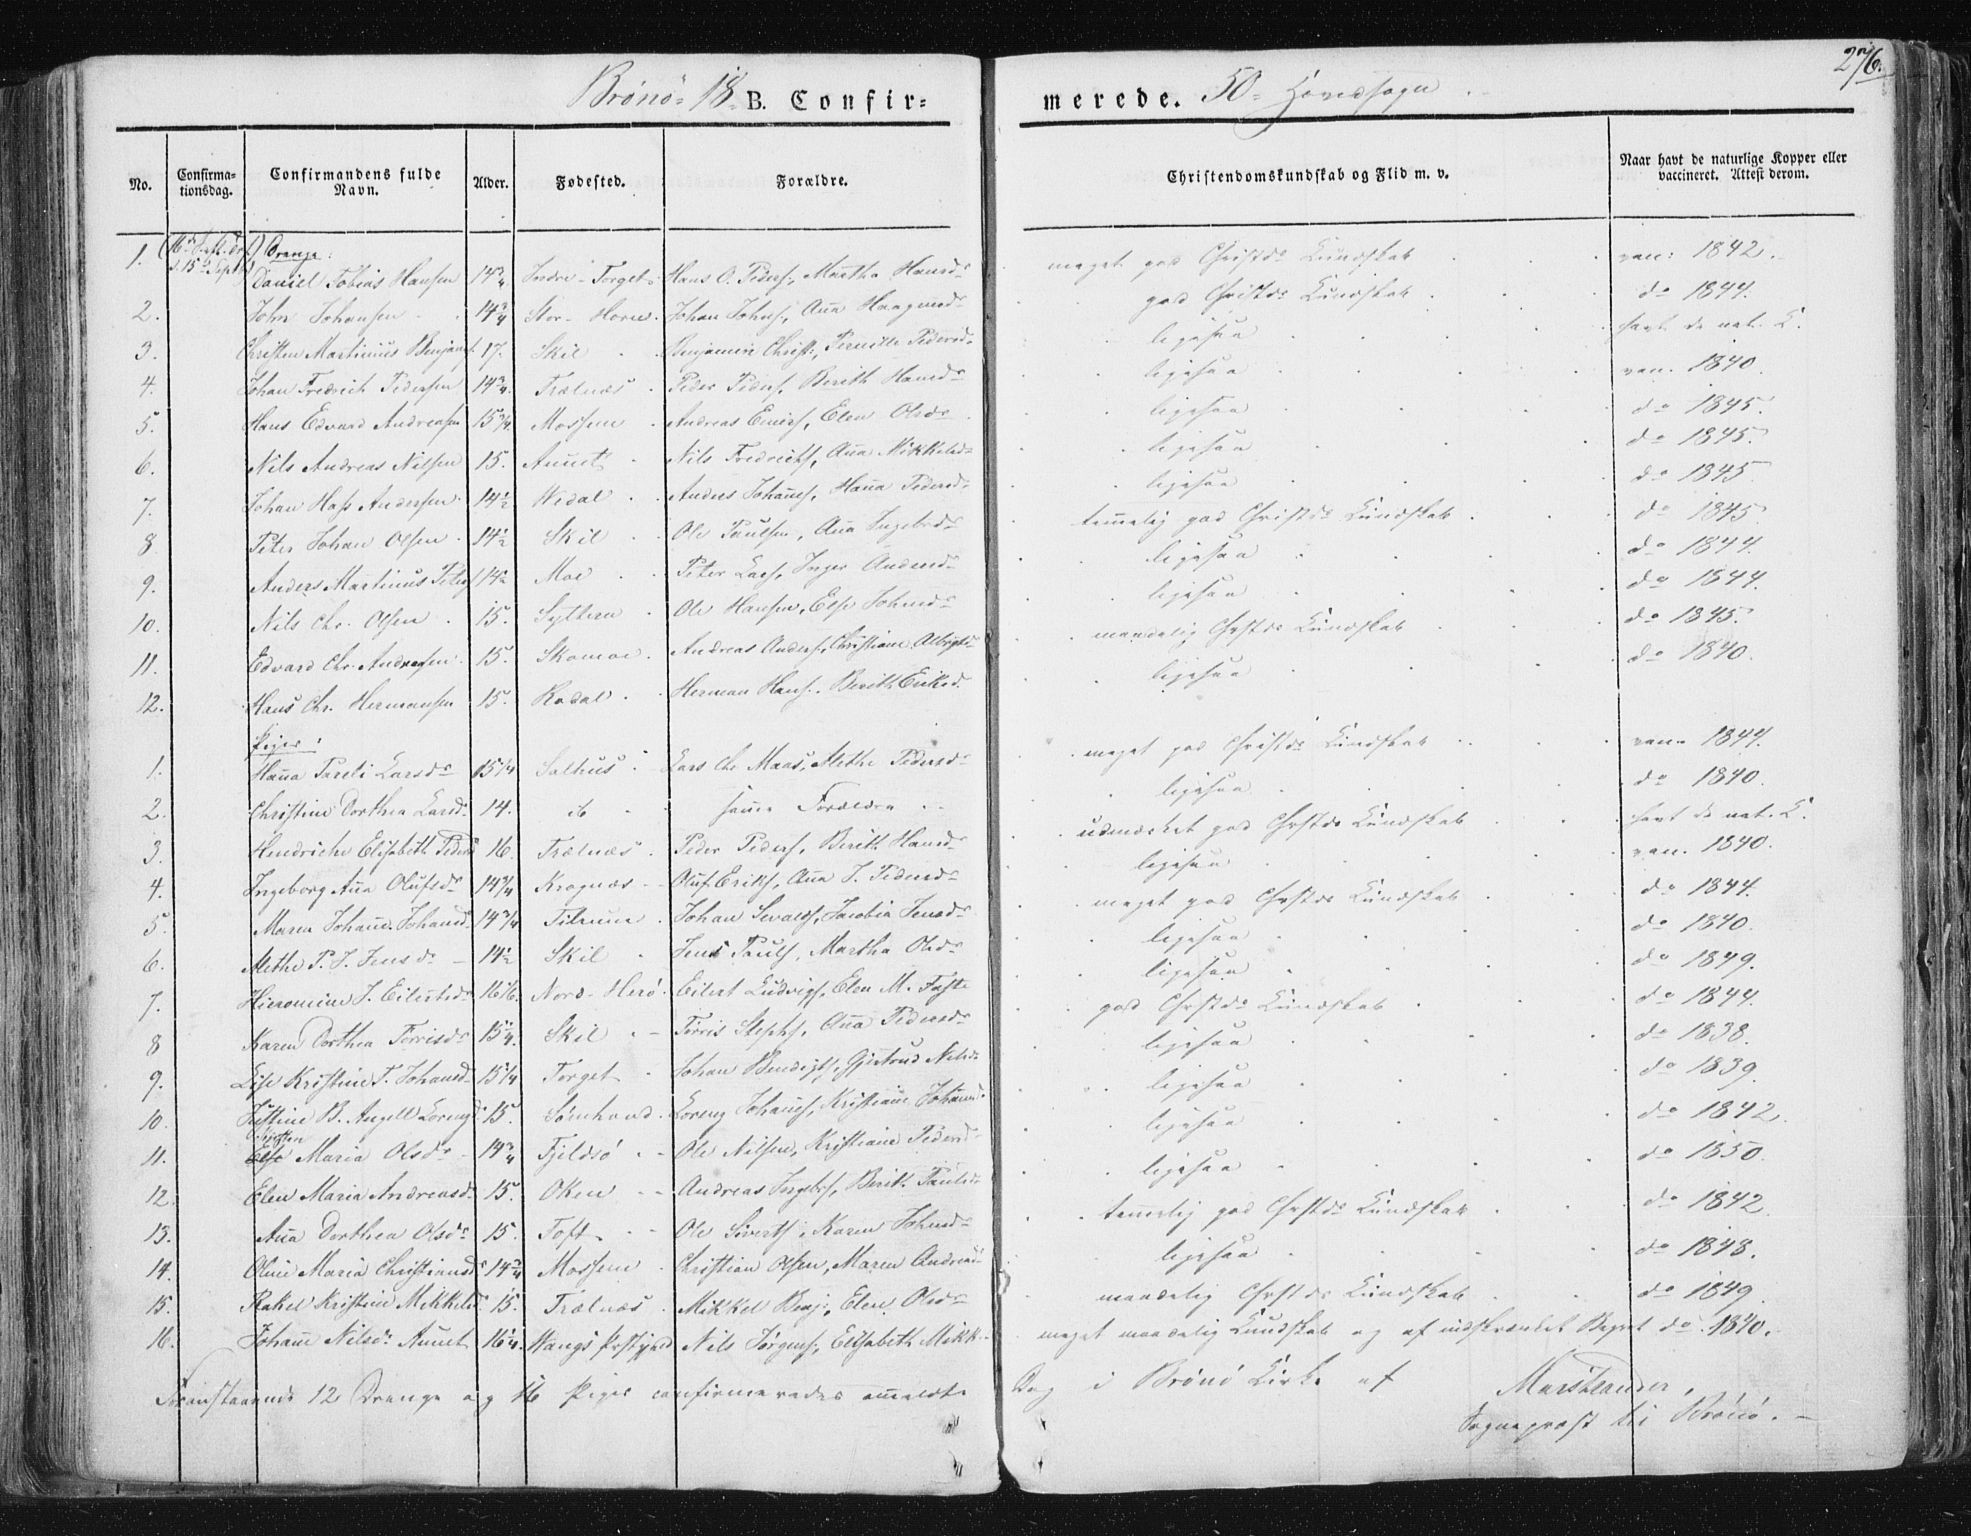 276.
Brönö 18 B. Confir=
merede. 50. Hovedsogn
No. Confirma=tionsdag. Confirmandens fulde Navn. Alder. Fødested. Forældre. Christendomskundskab og Flid m. v. Naar havt de naturlige Kopper eller vaccineret. Attest derom.
Drenge:
1. Daniel Tobias Hansen 14 3/4 Indre-Torget Hans O. Peders, Martha Hansdr meget god Christds Kundskab vac: 1842.
2. John Johansen 14 3/4 Stor-Horn Johan Johns, Ana Haagensdr god Christds Kundskab do 1844.
3. Christen Martinus Benjams. 17. Skil Benjamin Christ:, Pernille Pedersd. ligesaa havt de nat. K.
4. Johan Fredrich Pedersen 14 3/4 Trælnæs Peder Peders, Berith Hansdr ligesaa vac. 1840.
5. Hans Edvard Andreasen 15 1/4 Mossem Andreas, Elen Olsdr ligesaa do 1845.
6. Nils Andreas Nilsen 15. Aunet Nils Fredriks, Ana Mikkelsdr ligesaa do 1845.
7. Johan Hass Andersen 14 1/2 Wedal Anders Johans, Hana Pedersd. ligesaa do 1845
8 Peter Johan Olsen 14 1/2 Skil Ole Paulsen, Ana Ingebrdr temelig god Christds Kundskab do 1845
9. Anders Martinus Peters 14 1/2 Moe Peter Lars, Inger Andersdr ligesaa do 1844.
10. Nils Chr. Olsen 15. Syltern Ole Hansen, Else Johnsdr ligesaa do 1844.
11. Edvard Chr. Andreasen 15. Skomoe Andreas Anders, Christiane Albrigtsdr maadelig Chrstds Kundskab do 1845.
12. Hans Chr. Hermansen 15. Rodal Herman Hans. Berith Eriksd. ligesaa do 1840.
Piger:
1. Hana Pareli Larsdr 15 1/4 Salhus Lars Chr Maas, Methe Pedersdr meget god Christds Kundskab vac. 1844.
2. Christine Dorthea Larsd. 14. ib same Forældre ligesaa do 1840.
3. Hendrikke Elisabeth Peders 16. Trælnæs Peder Peders, Berith Hansdr udmærket god Chrstds Kundskab havt de nat. K.
4. Ingeborg Ana Olufsdr 14 3/4 Krognæs Oluf Eriks, Ana J. Pedersdr ligesaa vac. 1840.
5. Maren Johane Johansd. 14 3/4 Tilrum Johan Sevalds, Jacobia Jensdr meget god Chrstds Kundskab do 1844.
6. Methe P. J. Jensdr 14 1/2 Skil Jens Pauls, Martha Olsdr ligesaa do 1840.
7. Hieromine J. Eilertsdr 16 1/2. Nord-Herö Eilert Ludvigs, Elen M. Faste ligesaa do 1849.
8 Karen Dorthea Torrisdr 15 1/4. Skil Torris Stephs, Ana Pedersdr god Chrstds Kundskab do 1844.
9. Lise Kristine T. Johansd. 15 1/4 Torget Johan Bendigts, Gjertrud Nilsdr ligesaa do 1838.
10. Justine B. Angell Lorenzd. 15. Sömhovd Lorenz Johans, Kristiane Johansd. ligesaa do 1839.
11. Else Maria Olsdr 14 3/4 Fjeldsö Ole Nilsen, Kristiane Pedersd. ligesaa do 1842.
12. Elen Maria Andreasd. 15. Oken Andreas Ingebrs, Berit Paulsd. ligesaa do 1850.
13. Ana Dorthea Olsdr 15. Toft Ole Siverts, Karen Johnsdr temelig god Chrstds Kundskab do 1842.
14. Oline Maria Christiansd. 14 3/4 Mossem Christian Olsen, Maren Andreasd. ligesaa do 1848.
15. Rakel Kristine Mikkelsd. 15. Trælnæs Mikkel Benj:, Elen Olsdr maadelig Chrstds Kundskab do 1849.
16. Johane Nilsdr Aunet 16 1/4. Wangs Prstgjeld Nils Jörgens, Elisabeth Mikk. meget maadelig Kundskab og af indskrænket Begreb do 1840.
Foranstaaende 12 Drenge og 16 Piger confirmeredes anmeldte Dag i Brönö Kirke af Marstrander,
Sognepræst til Brönö.